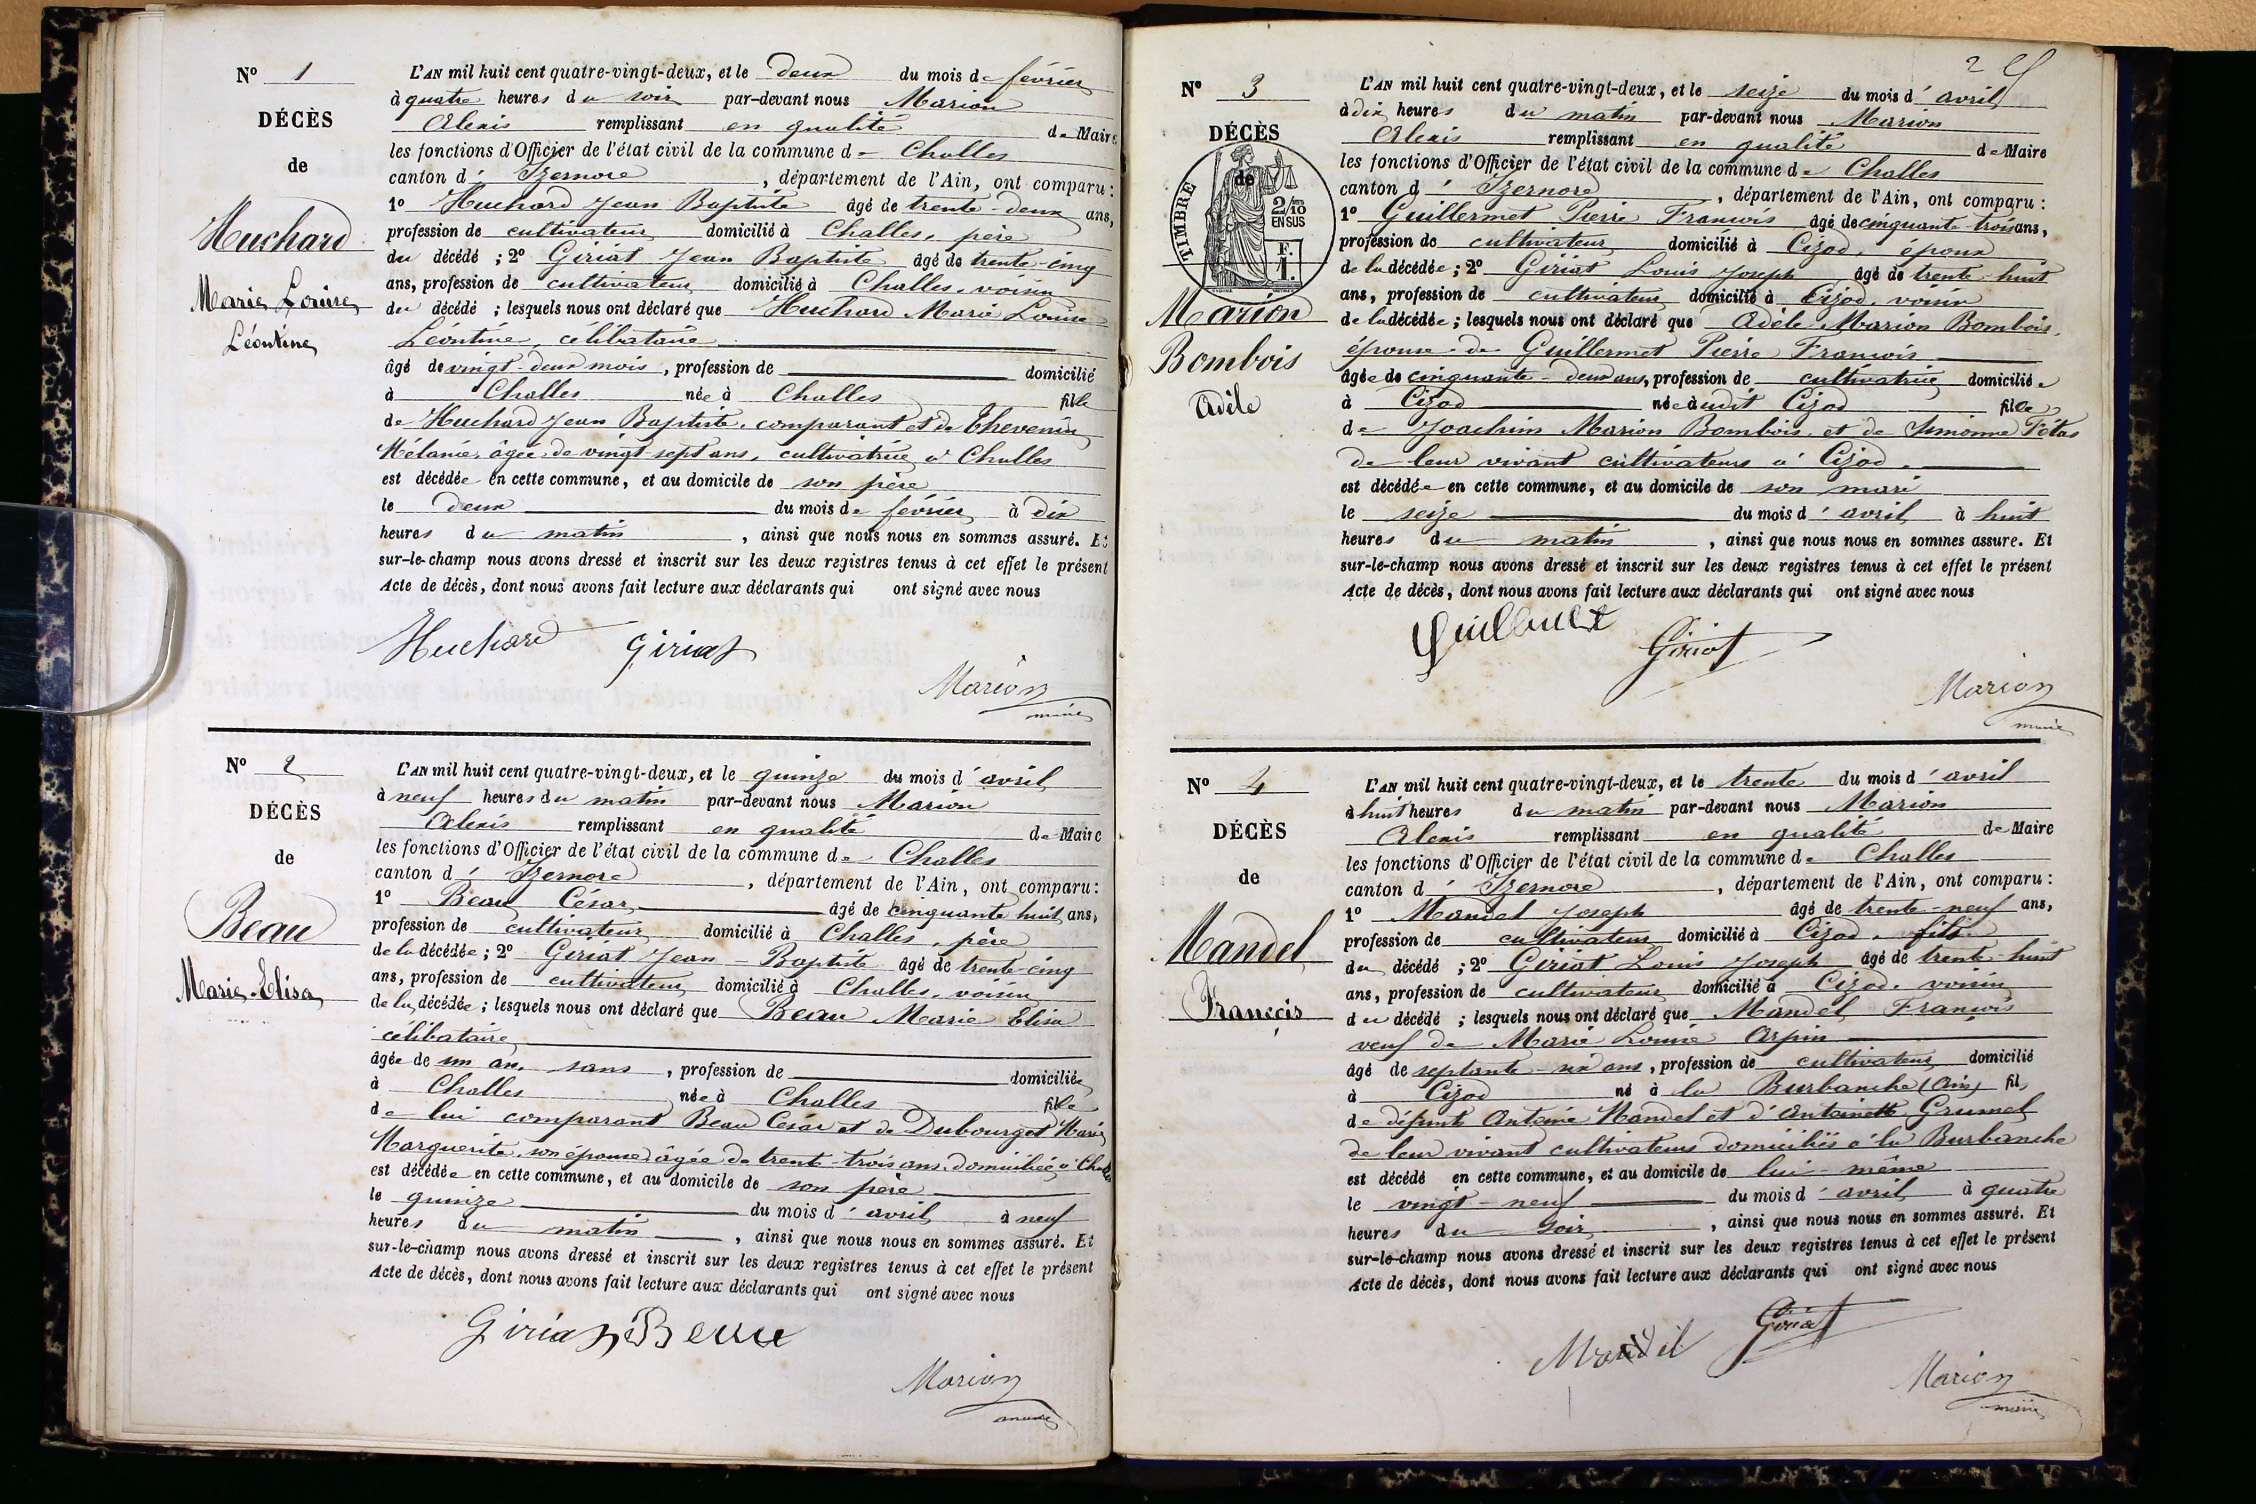 N° 1
DÉCÈS
de
Huchard
Marie Louise
Léontine
L'AN mil huit cent quatre-vingt-deux, et le deux du mois de février
à quatre heures du soir par-devant nous Marion
Alexis remplissant en qualité de Maire
les fonctions d'Officier de l'état civil de la commune de Challes
canton d' Izernore, département de l'Ain, ont comparu :
1° Huchard Jean Baptiste âgé de trente-deux ans,
profession de cultivateur domicilié à Challes, père
du décédé ; 2° Giriat Jean Baptiste âgé de trente-cinq
ans, profession de cultivateur domicilié à Challes, voisin
du décédé ; lesquels nous ont déclaré que Huchard Marie Louise
Léontine, célibataire
âgé de vingt-deux mois, profession de domicilié
à Challes née à Challes fille
de Huchard Jean Baptiste, comparant et de Thevenin
Mélanie, âgée de vingt-sept ans, cultivatrice à Challes
est décédée en cette commune, et au domicile de son père
le deux du mois de février à dix
heures du matin, ainsi que nous nous en sommes assuré. Et
sur-le-champ nous avons dressé et inscrit sur les deux registres tenus à cet effet le présent
Acte de décès, dont nous avons fait lecture aux déclarants qui ont signé avec nous
Huchard Giriat
Marion
maire
N° 2
DÉCÈS
de
Beau
Marie-Elisa
L'AN mil huit cent quatre-vingt-deux, et le quinze du mois d'avril
à neuf heures du matin par-devant nous Marion
Alexis remplissant en qualité de Maire
les fonctions d'Officier de l'état civil de la commune de Challes
canton d' Izernore, département de l'Ain, ont comparu :
1° Beau César âgé de cinquante huit ans,
profession de cultivateur domicilié à Challes, père
de la décédée ; 2° Giriat Jean-Baptiste âgé de trente-cinq
ans, profession de cultivateur domicilié à Challes, voisin
de la décédée ; lesquels nous ont déclaré que Beau Marie Elisa
célibataire
âgée de un an, sans, profession de domiciliée
à Challes née à Challes fille
de lui comparant Beau César et de Dubourget Marie
Marguerite, son épouse âgée de trente-trois ans, domiciliée à Challes
est décédée en cette commune, et au domicile de son père
le quinze du mois d'avril à neuf
heures du matin, ainsi que nous nous en sommes assuré. Et
sur-le-champ nous avons dressé et inscrit sur les deux registres tenus à cet effet le présent
Acte de décès, dont nous avons fait lecture aux déclarants qui ont signé avec nous
Giriat Beau
Marion
maire
2
N° 3
DÉCÈS
de
TIMBRE
2/10
EN SUS
F.
1.
Marion
Bombois
Adèle
L'AN mil huit cent quatre-vingt-deux, et le seize du mois d'avril
à dix heures du matin par-devant nous Marion
Alexis remplissant en qualité de Maire
les fonctions d'Officier de l'état civil de la commune de Challes
canton d' Izernore, département de l'Ain, ont comparu :
1° Guillermet Pierre François âgé de cinquante-trois ans,
profession de cultivateur domicilié à Cizod, époux
de la décédée ; 2° Giriat Louis Joseph âgé de trente-huit
ans, profession de cultivateur domicilié à Cizod, voisin
de la décédée ; lesquels nous ont déclaré que Adèle Marion Bombois,
épouse de Guillermet Pierre François
âgée de cinquante-deux ans, profession de cultivatrice domiciliée
à Cizod née audit Cizod fille
de Joachim Marion Bombois et de Simonne Tétas
de leur vivant cultivateurs à Cizod.
est décédée en cette commune, et au domicile de son mari
le seize du mois d'avril à huit
heures du matin, ainsi que nous nous en sommes assuré. Et
sur-le-champ nous avons dressé et inscrit sur les deux registres tenus à cet effet le présent
Acte de décès, dont nous avons fait lecture aux déclarants qui ont signé avec nous
Giriat
Marion
maire
N° 4
DÉCÈS
de
Mandel
François
L'AN mil huit cent quatre-vingt-deux, et le trente du mois d'avril
à huit heures du matin par-devant nous Marion
Alexis remplissant en qualité de Maire
les fonctions d'Officier de l'état civil de la commune de Challes
canton d' Izernore, département de l'Ain, ont comparu :
1° Mandel Joseph âgé de trente-neuf ans,
profession de cultivateur domicilié à Cizod, fils
du décédé ; 2° Giriat Louis Joseph âgé de trente-huit
ans, profession de cultivateur domicilié à Cizod, voisin
du décédé ; lesquels nous ont déclaré que Mandel François
veuf de Marie Louise Arpin
âgé de septante-six ans, profession de cultivateur domicilié
à Cizod né à la Burbanche (Ain) fils
de défunt Antoine Mandel et d'Antoinette Grumel
de leur vivant cultivateurs domiciliés à la Burbanche
est décédé en cette commune, et au domicile de lui-même
le vingt-neuf du mois d'avril à quatre
heures du soir, ainsi que nous nous en sommes assuré. Et
sur-le-champ nous avons dressé et inscrit sur les deux registres tenus à cet effet le présent
Acte de décès, dont nous avons fait lecture aux déclarants qui ont signé avec nous
Mandel Giriat
Marion
maire